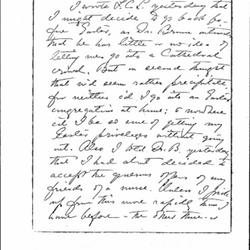 I wrote L.C.C. yesterday that
I might decide to go back be-
fore Easter, as Dr. Brown
that he has little or no idea of
letting me go into a Cathedral
crowd. But on second thought
that w'd seem rather precipitate
for neither c'd I go into an Easter
congregation at home; & no
I be so sure of getting my
Easter privileges without going
out. Also I told Dr. B. yesterday
that I had about decided to
accept the generous offers of my
friends of a nurse. Unless I pick
up from this more rapidly than I
have before - the other times - is